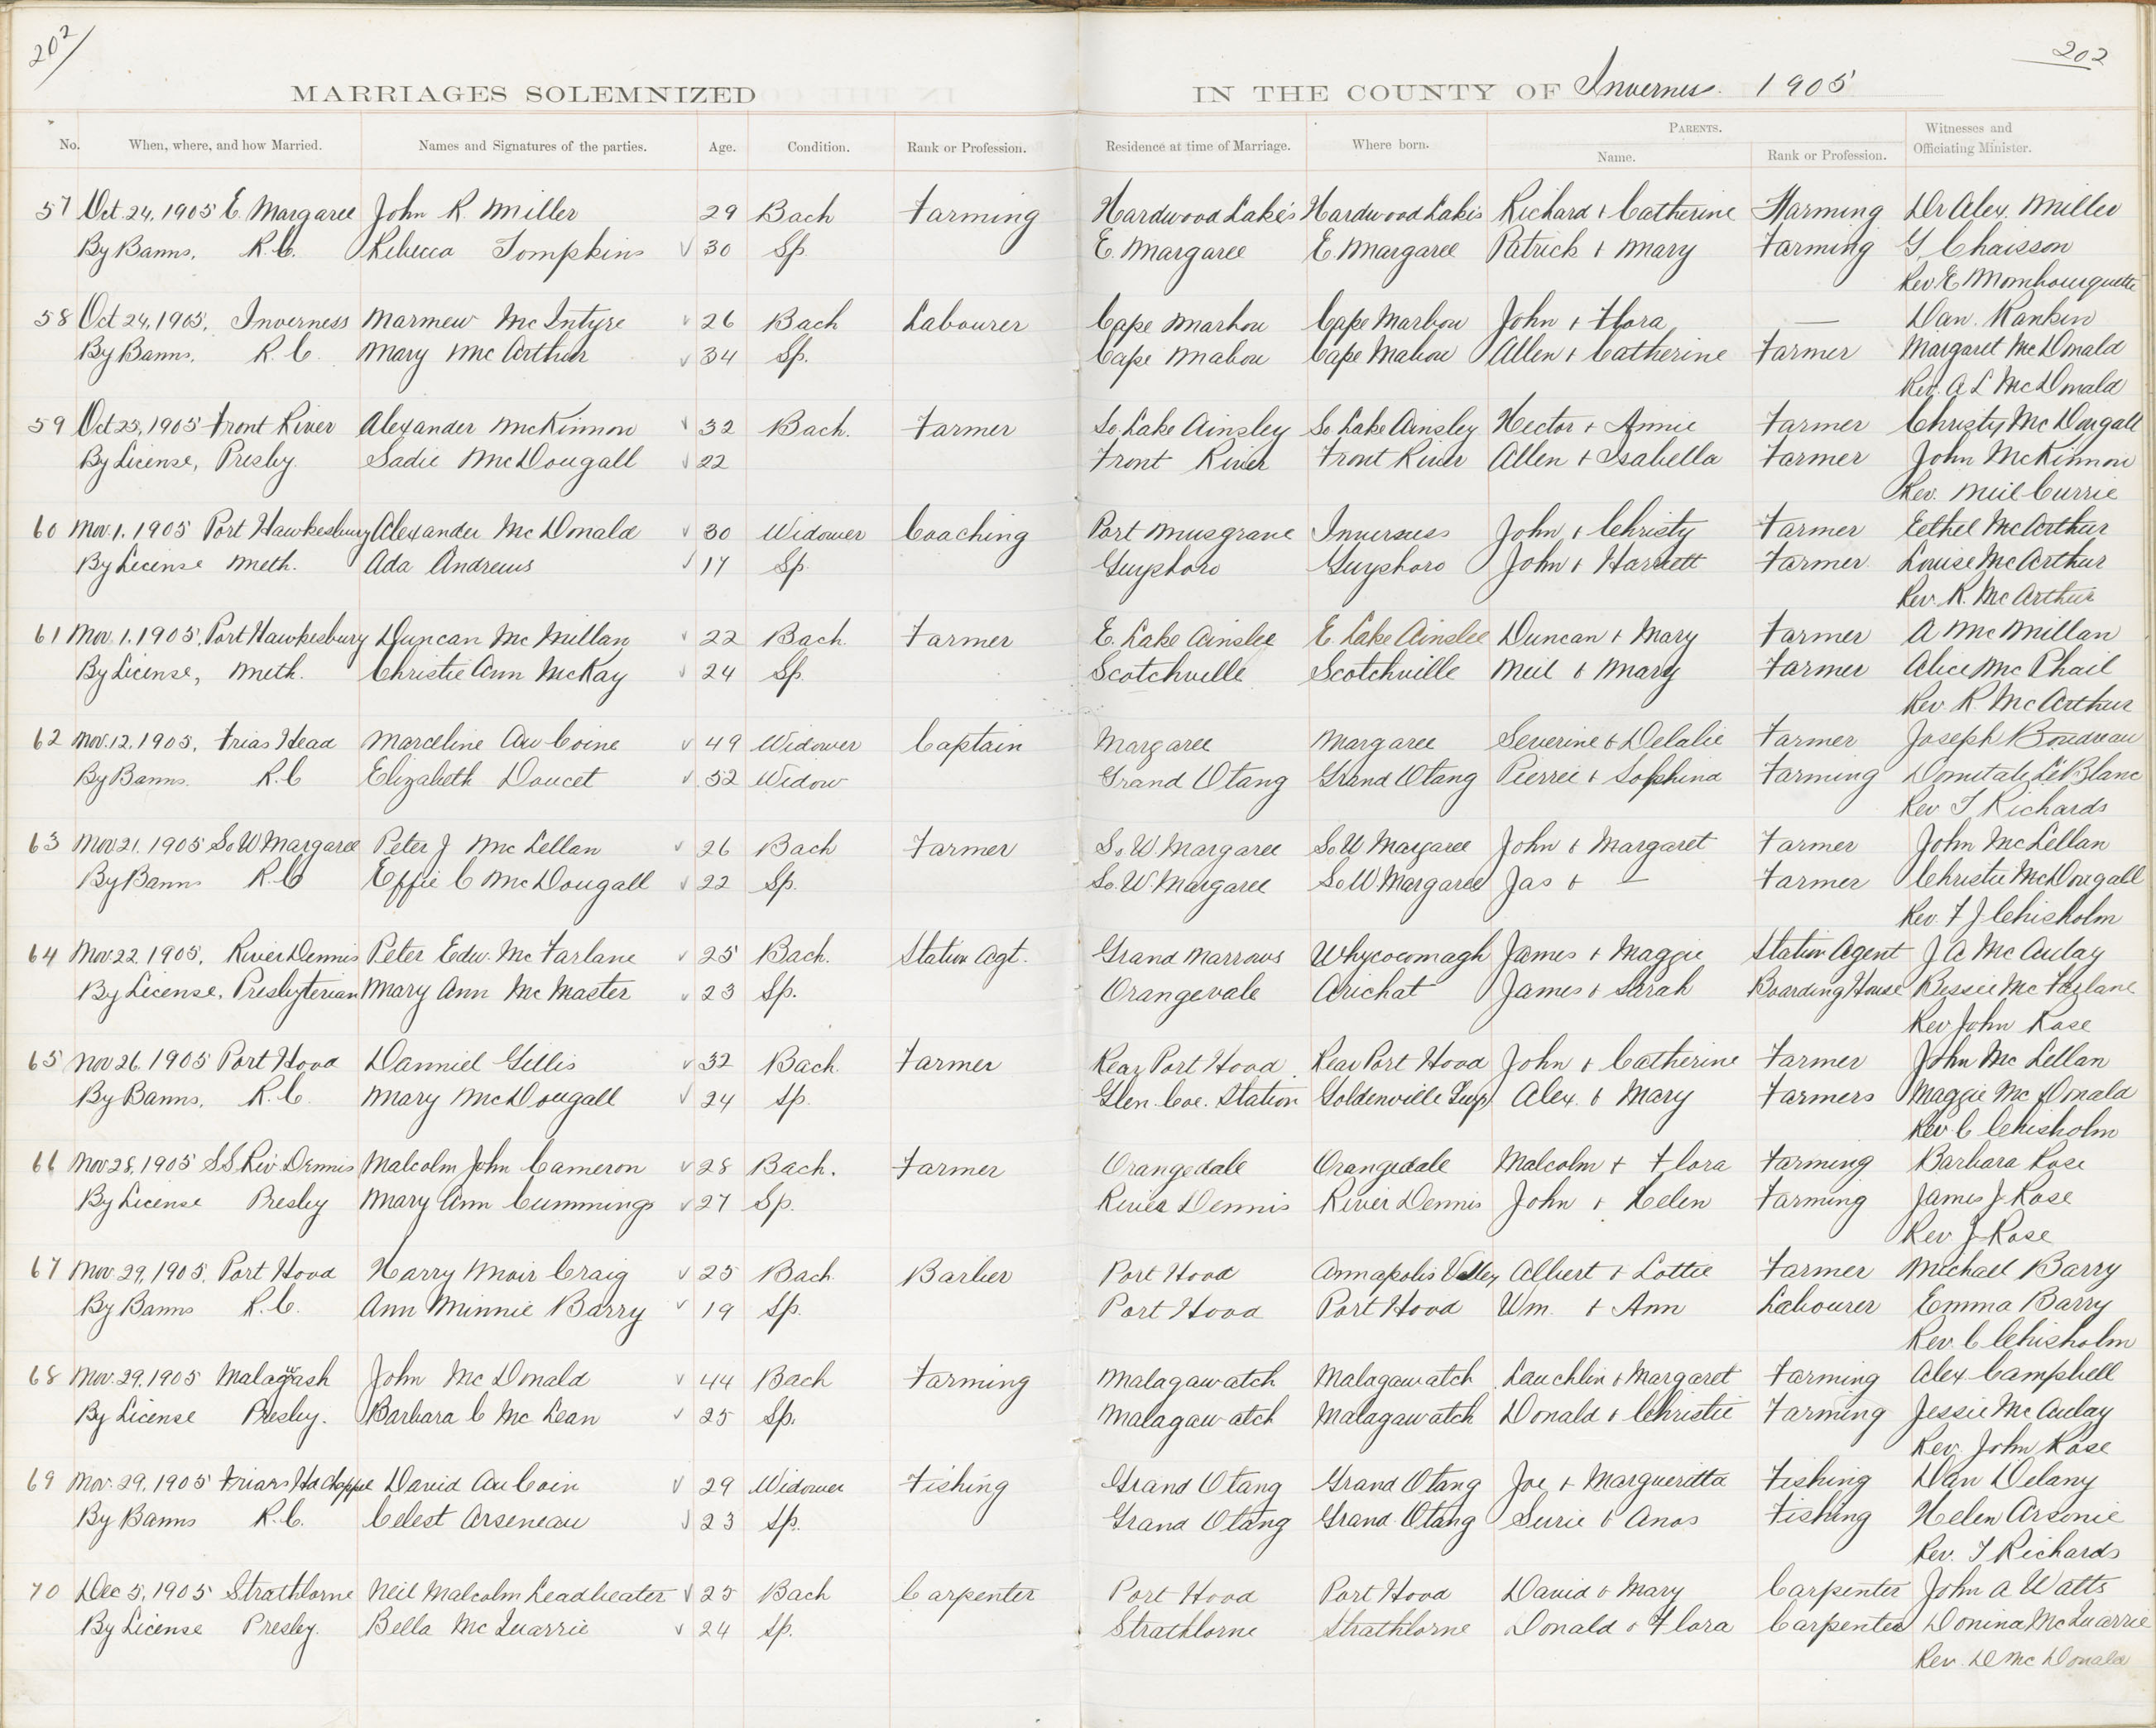 202
202
MARRIAGES SOLEMNIZED IN THE COUNTY OF Inverness. 1905
No. When, where, and how Married. Names and Signatures of the parties. Age. Condition. Rank or Profession. Residence at time of Marriage. Where born. PARENTS. Name. Rank or Profession. Witnesses and Officiating Minister.
57 Oct. 24, 1905 E. Margaree John R. Miller 29 Bach Farming Hardwood Lakes Hardwood Lakes Richard + Catherine Farming Dr Alex. Miller
By Banns, R.C. Rebecca Tompkins 30 Sp. E. Margaree E. Margaree Patrick + Mary Farming G Chaisson
Rev E Mombourquette
58 Oct 24, 1905, Inverness Marmew McIntyre 26 Bach Labourer Cape Marbou Cape Marbou John + Flora — Dan. Rankin
By Banns, R.C. Mary McArthur 34 Sp. Cape Mabou Cape Mabou Allen + Catherine Farmer Margaret McDonald
Rev. A L McDonald
59 Oct 25, 1905 Front River Alexander McKinnon 32 Bach. Farmer So Lake Ainsley So Lake Ainsley Hector + Annie Farmer Christy McDougall
By License, Presby. Sadie McDougall 22 Front River Front River Allen + Isabella Farmer John McKinnon
Rev. Neil Currie
60 Nov. 1, 1905 Port Hawkesbury Alexander McDonald 30 Widower Coaching Port Musgrave Inverness John + Christy Farmer Eethel McArthur
By License Meth. Ada Andrews 17 Sp. Guysboro Guysboro John + Harriett Farmer Louise McArthur
Rev. R. McArthur
61 Nov. 1, 1905, Port Hawkesbury Duncan McMillan 22 Bach. Farmer E. Lake Ainslee E. Lake Ainslee Duncan + Mary Farmer A McMillan
By License, Meth. Christie Ann McKay 24 Sp. Scotchville Scotchville Neil + Mary Farmer Alice McPhail
Rev. R. McArthur
62 Nov. 12, 1905, Frias Head Marceline Au Coine 49 Widower Captain Margaree Margaree Severine + Delalie Farmer Joseph Boudreau
By Banns. R.C Elizabeth Doucet 52 Widow Grand Etang Grand Etang Pierrei + Sophina Farming Domitale LeBlanc
Rev T Richards
63 Nov 21, 1905 So W Margaree Peter J McLellan 26 Bach Farmer So W Margaree So W Margaree John + Margaret Farmer John McLellan
By Banns R.C Effie C McDougall 22 Sp. So. W. Margaree So W Margaree Jas + — Farmer Christie McDougall
Rev. F J Chisholm
64 Nov 22, 1905, River Dennis Peter Edw. McFarlane 25 Bach. Station Agt. Grand Narrows Whycocomagh James + Maggie Station Agent J A McAulay
By License, Presbyterian Mary Ann McMaster 23 Sp. Orangevale Arichat James + Sarah Boarding House Bessie McFarlane
Rev John Rose
65 Nov 26, 1905 Port Hood Danniel Gillis 32 Bach Farmer Rear Port Hood Rear Port Hood John + Catherine Farmer John McLellan
By Banns, R.C. Mary McDougall 24 Sp. Glen Coe. Station Goldenville Guys Alex. + Mary Farmers Maggie McDonald
Rev C Chisholm
66 Nov 28, 1905 S S Riv. Dennis Malcolm John Cameron 28 Bach. Farmer Orangedale Orangedale Malcolm + Flora Farming Barbara Rose
By License Presby Mary Ann Cummings 27 Sp. River Dennis River Dennis John + Helen Farming James J. Rose
Rev J Rose
67 Nov 29, 1905, Port Hood Harry Moir Craig 25 Bach Barber Port Hood Annapolis Valley Albert + Lottie Farmer Michael Barry
By Banns R.C. Ann Minnie Barry 19 Sp. Port Hood Port Hood Wm. + Ann Labourer Emma Barry
Rev. C Chisholm
68 Nov. 29, 1905 Malagash John McDonald 44 Bach Farming Malagawatch Malagawatch Lauchlin + Margaret Farming Alex Campbell
By License Presby. Barbara C McLean 25 Sp. Malagawatch Malagawatch Donald + Christie Farming Jessie McAulay
Rev. John Rose
69 Nov. 29, 1905 Friars Hd Chappel David Au Coin 29 Widower Fishing Grand Etang Grand Etang Joe + Margueritta Fishing Dan Delany
By Banns R.C. Celest Arseneau 23 Sp. Grand Etang Grand Etang Surie + Anos Fishing Helen Arsonie
Rev. T Richards
70 Dec 5, 1905 Strathlorne Neil Malcolm Leadbeater 25 Bach Carpenter Port Hood Port Hood David + Mary Carpenter John A Watts
By License Presby. Bella McQuarrie 24 Sp. Strathlorne Strathlorne Donald + Flora Carpenter Donina McQuarrie
Rev. D McDonald